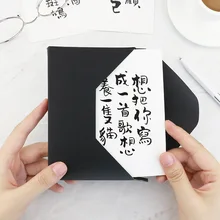 想把你寫
成一首歌想
養一隻貓